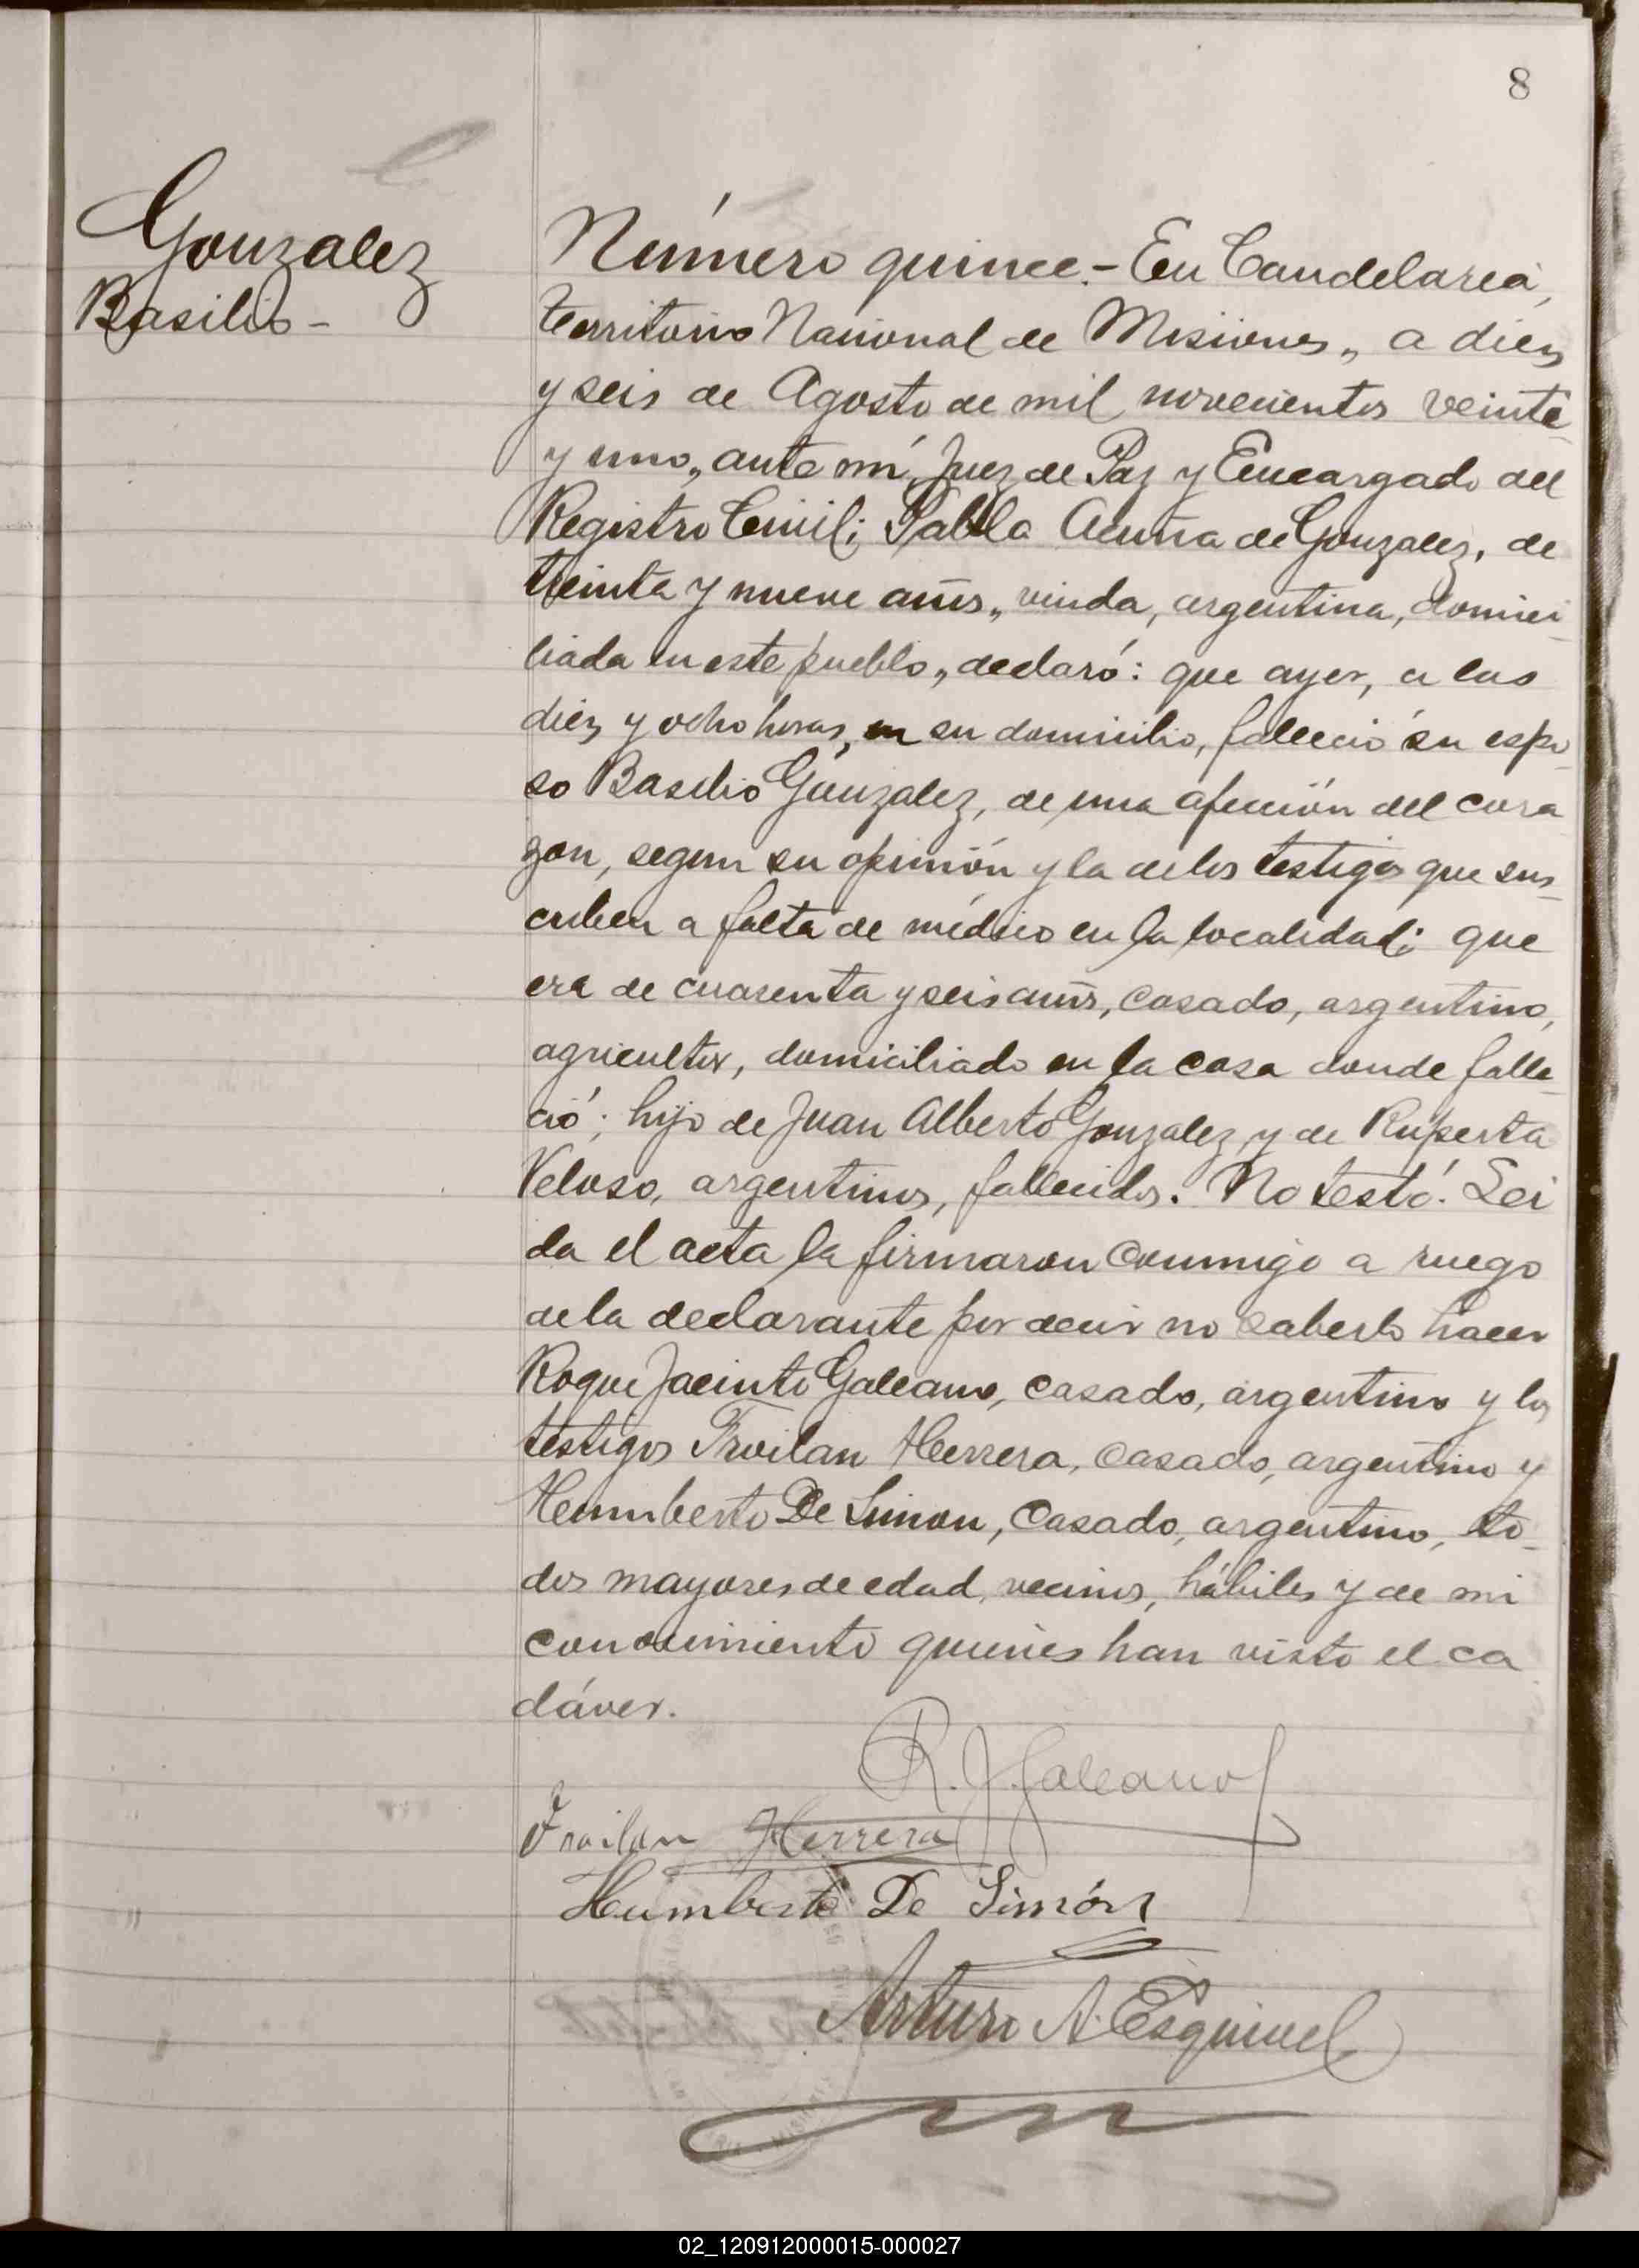 8
Gonzalez
Basilio -
Número quince.- En Candelaria,
territorio Nacional de Misiones, a diez
y seis de Agosto de mil novecientos veinte
y uno, ante mí, Juez de Paz y Encargado del
Registro Civil; Pabla Acuña de Gonzalez, de
treinta y nueve años, viuda, argentina, domici-
liada en este pueblo, declaró: que ayer, a las
diez y ocho horas, en su domicilio, falleció su espo-
so Basilio Gonzalez, de una afección del cora
zon, segun su opinión y la de los testigos que sus-
criben a falta de médico en la localidad; que
era de cuarenta y seis años, casado, argentino,
agricultor, domiciliado en la casa donde falle-
ció; hijo de Juan Alberto Gonzalez y de Ruperta
Veloso, argentinos, fallecidos. No testó. Lei
da el acta la firmaron conmigo a ruego
de la declarante por decir no saberlo hacer
Roque Jacinto Galeano, casado, argentino y los
testigos Froilan Herrera, casado, argentino y
Humberto De Simon, casado, argentino, to-
dos mayores de edad, vecinos, hábiles y de mi
conocimiento quienes han visto el ca
dáver.
R. J. Galeano
Froilan Herrera
Humberto De Simón
Arturo A. Esquivel
02_120912000015-000027